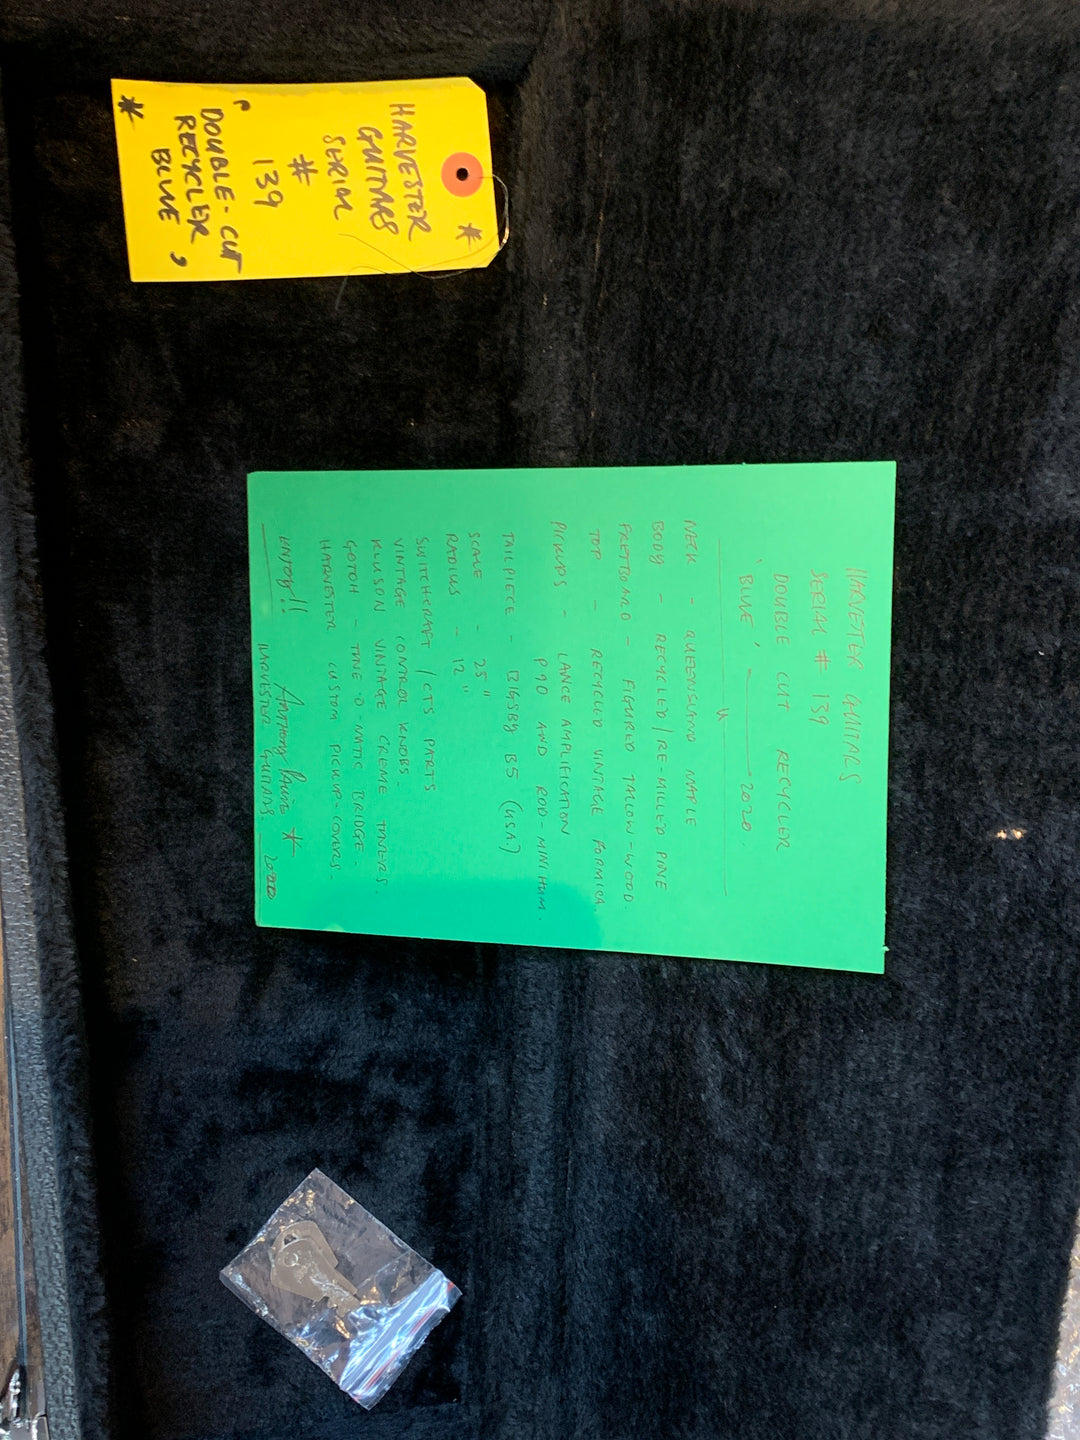 HARVESTER
GUITARS
SERIAL
#
139
"
DOUBLE-CUT
RECYCLER
BLUE "
HARVETER GUITARS
SERIAL # 139
DOUBLE CUT RECYCLER
' BLUE ' 2020
NECK - QUEENSLAND MAPLE
BODY - RECYCLED/RE-MILLED PINE
FRETBOARD - FIGURED TALLOW-WOOD.
TOP - RECYCLED VINTAGE FORMICA.
PICKUPS - LANCE AMPLIFICATION
P90 AND ROD-MINIHUM.
TAILPIECE - BIGSBY B5 (USA.)
SCALE - 25"
RADIUS - 12"
SWITCHCRAFT / CTS PARTS
VINTAGE CONTROL KNOBS.
KLUSON VINTAGE CREME TUNERS.
GOTOH - TUNE-O-MATIC BRIDGE.
HARVESTER CUSTOM PICKUP-COVERS.
ENJOY!! Anthony
HARVESTER GUITARS.